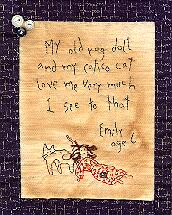 My old rag doll
and my calico cat
Love me very much
I see to that
Emily
age 6